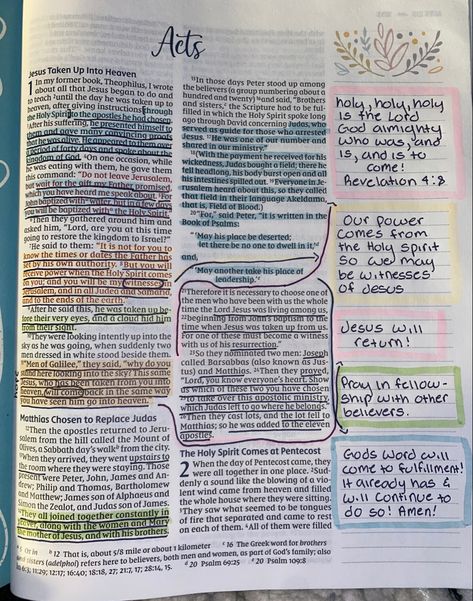 Acts
Jesus Taken Up Into Heaven
1 In my former book, Theophilus, I wrote
about all that Jesus began to do and
to teach 2until the day he was taken up to
heaven, after giving instructions through
the Holy Spirit to the apostles he had chosen.
3After his suffering, he presented himself to
them and gave many convincing proofs
that he was alive. He appeared to them over
a period of forty days and spoke about the
kingdom of God. 4On one occasion, while
he was eating with them, he gave them
this command: "Do not leave Jerusalem,
but wait for the gift my Father promised,
which you have heard me speak about. 5For
John baptized with water, but in a few days
you will be baptized with the Holy Spirit."
6Then they gathered around him and
asked him, "Lord, are you at this time
going to restore the kingdom to Israel?"
7He said to them: "It is not for you to
know the times or dates the Father has
set by his own authority. 8But you will
receive power when the Holy Spirit comes
on you; and you will be my witnesses in
Jerusalem, and in all Judea and Samaria,
and to the ends of the earth."
9After he said this, he was taken up be-
fore their very eyes, and a cloud hid him
from their sight.
10They were looking intently up into the
sky as he was going, when suddenly two
men dressed in white stood beside them.
11"Men of Galilee," they said, "why do you
stand here looking into the sky? This same
Jesus, who has been taken from you into
heaven, will come back in the same way
you have seen him go into heaven."
Matthias Chosen to Replace Judas
12Then the apostles returned to Jeru-
salem from the hill called the Mount of
Olives, a Sabbath day's walk b from the city.
13When they arrived, they went upstairs to
the room where they were staying. Those
present were Peter, John, James and An-
drew; Philip and Thomas, Bartholomew
and Matthew; James son of Alphaeus and
Simon the Zealot, and Judas son of James.
14They all joined together constantly in
prayer, along with the women and Mary
the mother of Jesus, and with his brothers.
15In those days Peter stood up among
the believers (a group numbering about a
hundred and twenty) 16and said, "Brothers
and sisters,c the Scripture had to be ful-
filled in which the Holy Spirit spoke long
ago through David concerning Judas, who
served as guide for those who arrested
Jesus. 17He was one of our number and
shared in our ministry."
18(With the payment he received for his
wickedness, Judas bought a field; there he
fell headlong, his body burst open and all
his intestines spilled out. 19Everyone in Je-
rusalem heard about this, so they called
that field in their language Akeldama,
that is, Field of Blood.)
20"For," said Peter, "it is written in the
Book of Psalms:
"'May his place be deserted;
let there be no one to dwell in it,'d
and,
"'May another take his place of
leadership.'e
21Therefore it is necessary to choose one of
the men who have been with us the whole
time the Lord Jesus was living among us,
22beginning from John's baptism to the
time when Jesus was taken up from us.
For one of these must become a witness
with us of his resurrection."
23So they nominated two men: Joseph
called Barsabbas (also known as Jus-
tus) and Matthias. 24Then they prayed,
"Lord, you know everyone's heart. Show
us which of these two you have chosen
25to take over this apostolic ministry,
which Judas left to go where he belongs."
26Then they cast lots, and the lot fell to
Matthias; so he was added to the eleven
apostles.
The Holy Spirit Comes at Pentecost
2 When the day of Pentecost came, they
were all together in one place. 2Sud-
denly a sound like the blowing of a vio-
lent wind came from heaven and filled
the whole house where they were sitting.
3They saw what seemed to be tongues
of fire that separated and came to rest
on each of them. 4All of them were filled
b 12 That is, about 5/8 mile or about 1 kilometer c 16 The Greek word for brothers
and sisters (adelphoi) refers here to believers, both men and women, as part of God's family; also
6:3; 11:29; 12:17; 16:40; 18:18, 27; 21:7, 17; 28:14, 15. d 20 Psalm 69:25 e 20 Psalm 109:8
holy, holy, holy
is the Lord
God almighty
who was, and
is, and is to
come!
Revelation 4:8
Our power
comes from
the Holy spirit
so we may
be witnesses
of Jesus
Jesus will
return!
Pray in fellow-
ship with other
believers.
Gods word will
come to fulfillment!
It already has &
will continue to
do so! Amen!